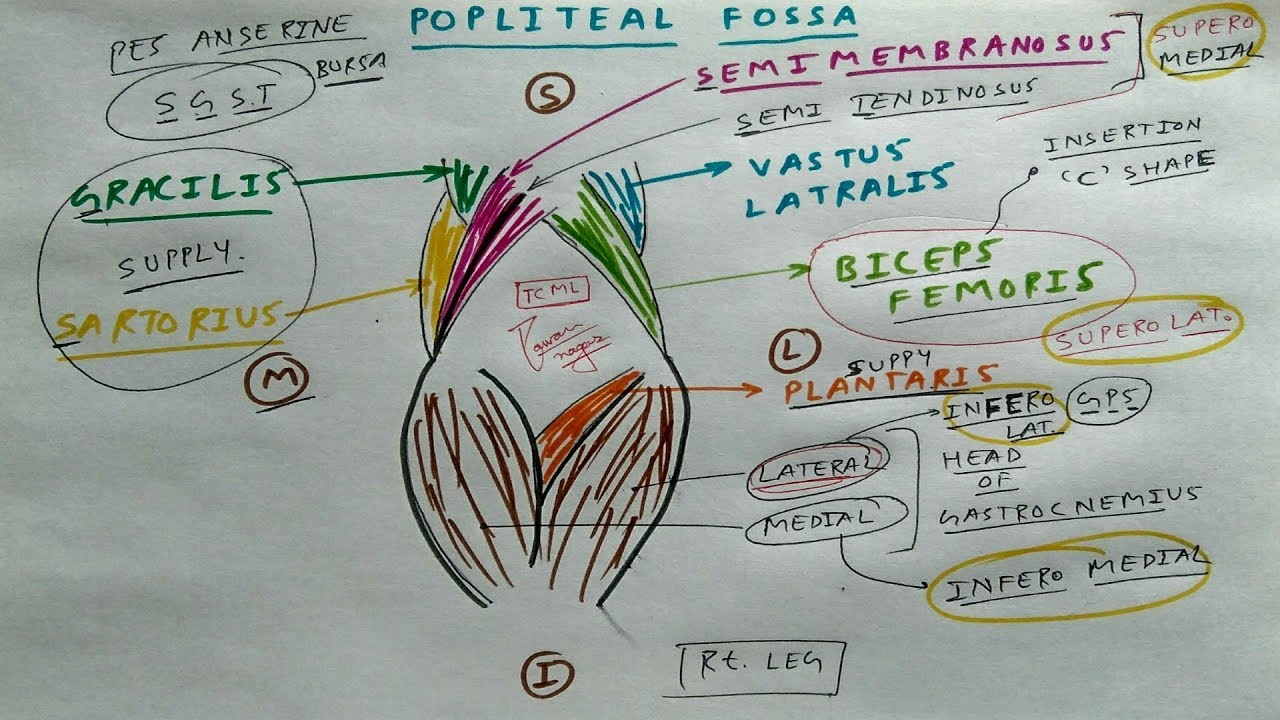 POPLITEAL FOSSA
PES ANSERINE
BURSA
S G S.T
S
SEMIMEMBRANOSUS
SEMI TENDINOSUS
SUPERO
MEDIAL
INSERTION
'C' SHAPE
GRACILIS
SUPPLY.
SARTORIUS
M
VASTUS
LATRALIS
BICEPS
FEMORIS
SUPERO LAT.
TCML
L
SUPPY
PLANTARIS
INFERO
LAT.
GPS
LATERAL
MEDIAL
HEAD
OF
GASTROCNEMIUS
INFERO MEDIAL
I
Rt. LEG